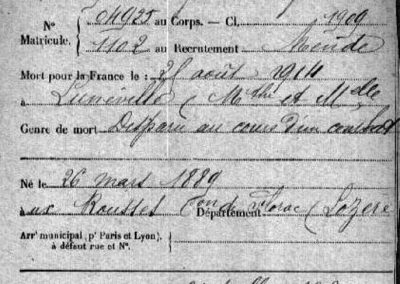 Nº 04925 au Corps. — Cl. 1909
Matricule. 1102 au Recrutement Mende
Mort pour la France le : 25 août 1914
à Lunéville (Mthe et Mlle
Genre de mort Disparu au cours d'un combat
Né le 26 mars 1889
à ux Rousses Con de Florac (Lozère
Département
Arrt municipal (pr Paris et Lyon),
à défaut rue et Nº.